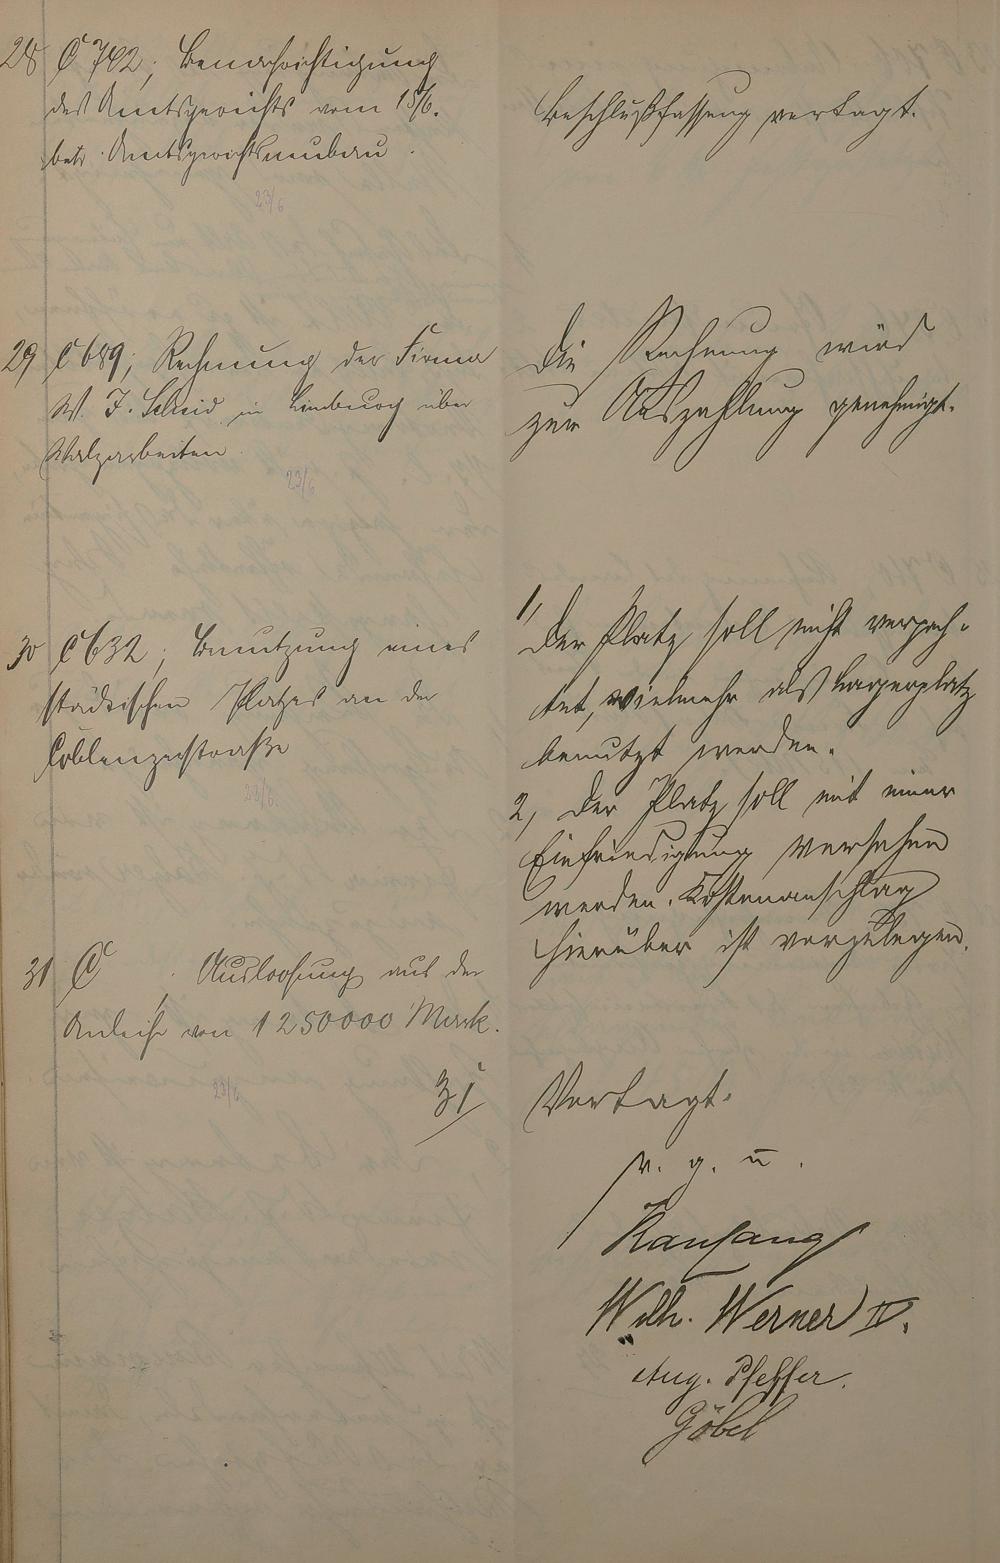 28 C 742; Benachrichtigung
des Amtsgerichts vom 15/6.
betr. Amtsgerichtsneubau.
23/6
Beschlußfassung vertagt.
29 C 689; Rechnung der Firma
W. J. Scheid in Limburg über
Walzarbeiten.
23/6
Die Rechnung wird
zur Auszahlung genehmigt.
30 C 632; Benutzung eines
städtischen Platzes an der
Coblenzerstraße
23/6.
1, Der Platz soll nicht verpach-
tet, vielmehr als Lagerplatz
benutzt werden.
2, Der Platz soll mit einer
Einfriedigung versehen
werden. Kostenanschlag
hierüber ist vorzulegen.
31 C . Ausloosung aus der
Anleihe von 1250000 Mark.
23/6
31 Vertagt.
v. g. u.
Kauhang
Wilh. Werner IV.
Aug. Pfeffer.
Göbel